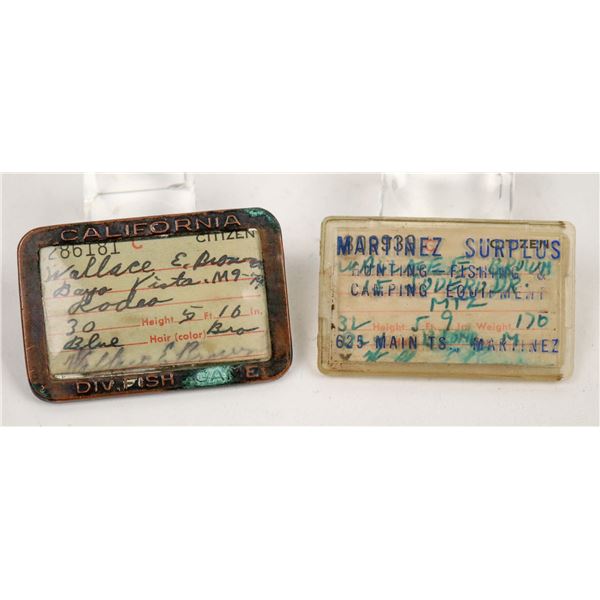 CALIFORNIA
286181 C CITIZEN
Wallace E.
Bayo Vista M9-A
Rodeo
30 Height 5 Ft. 10 In.
Blue Hair (color) Bro
Wallace E.
DIV. FISH GAME
CITIZEN
MARTINEZ SURPLUS
WALLACE E
HUNTING-FISHING &
DR.
CAMPING EQUIPMENT
MTZ
32 5 Ft. 9 In. Weight 170
625 MAIN TS. MARTINEZ